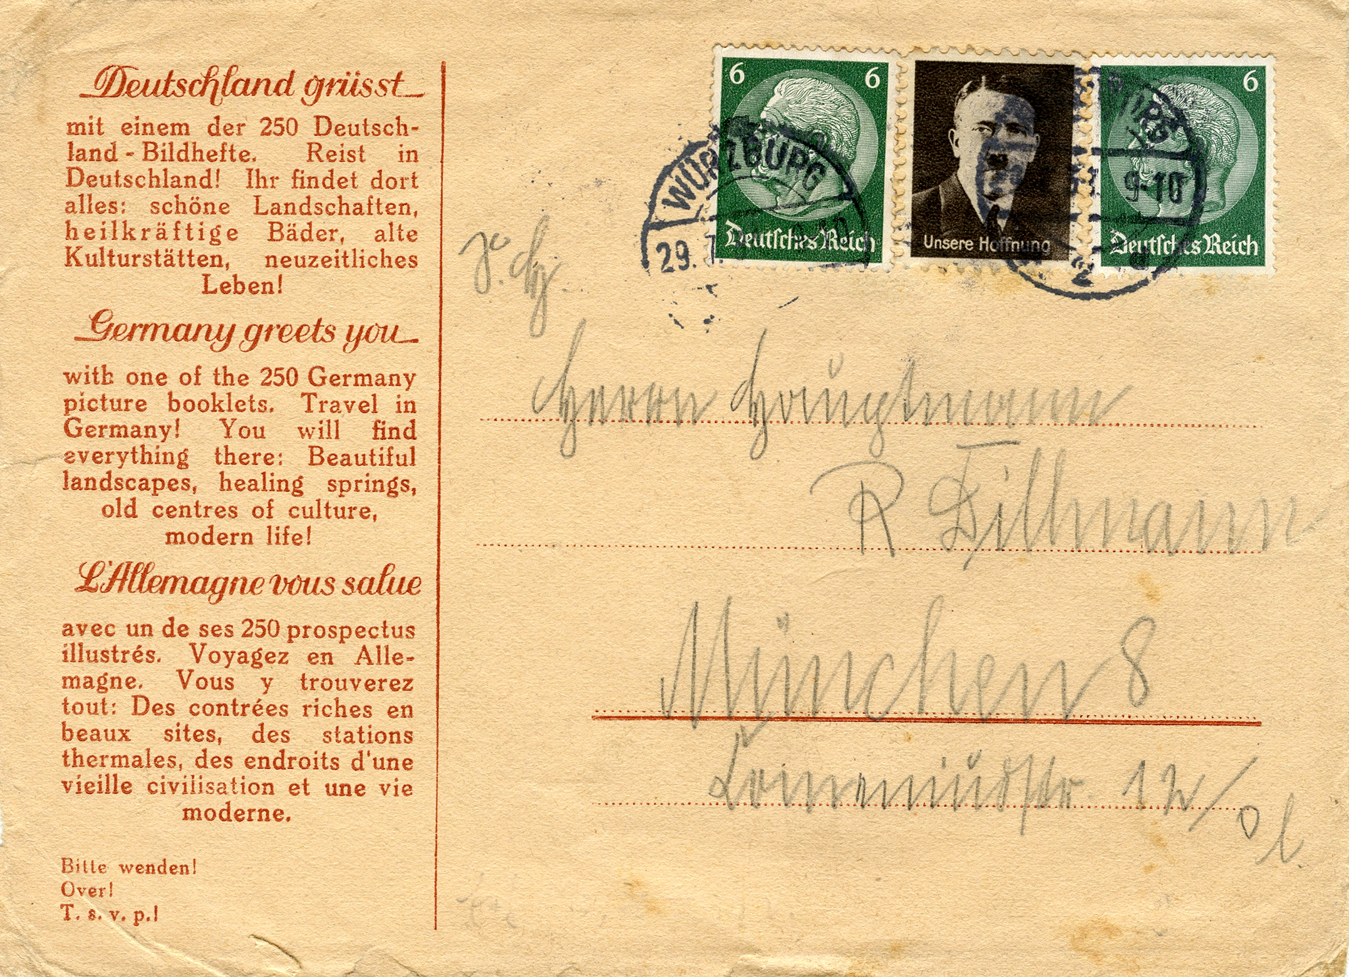 Deutschland grüsst
mit einem der 250 Deutsch-
land-Bildhefte. Reist in
Deutschland! Ihr findet dort
alles: schöne Landschaften,
heilkräftige Bäder, alte
Kulturstätten, neuzeitliches
Leben!
Germany greets you
with one of the 250 Germany
picture booklets. Travel in
Germany! You will find
everything there: Beautiful
landscapes, healing springs,
old centres of culture,
modern life!
L'Allemagne vous salue
avec un de ses 250 prospectus
illustrés. Voyagez en Alle-
magne. Vous y trouverez
tout: Des contrées riches en
beaux sites, des stations
thermales, des endroits d'une
vieille civilisation et une vie
moderne.
Bitte wenden!
Over!
T. s. v. p.!
6 6
Deutsches Reich
Unsere Hoffnung
6
Deutsches Reich
WÜRZBURG
29.7.
9-10
2
Herrn Hauptmann
R Dillmann
München 8
12/0 l.